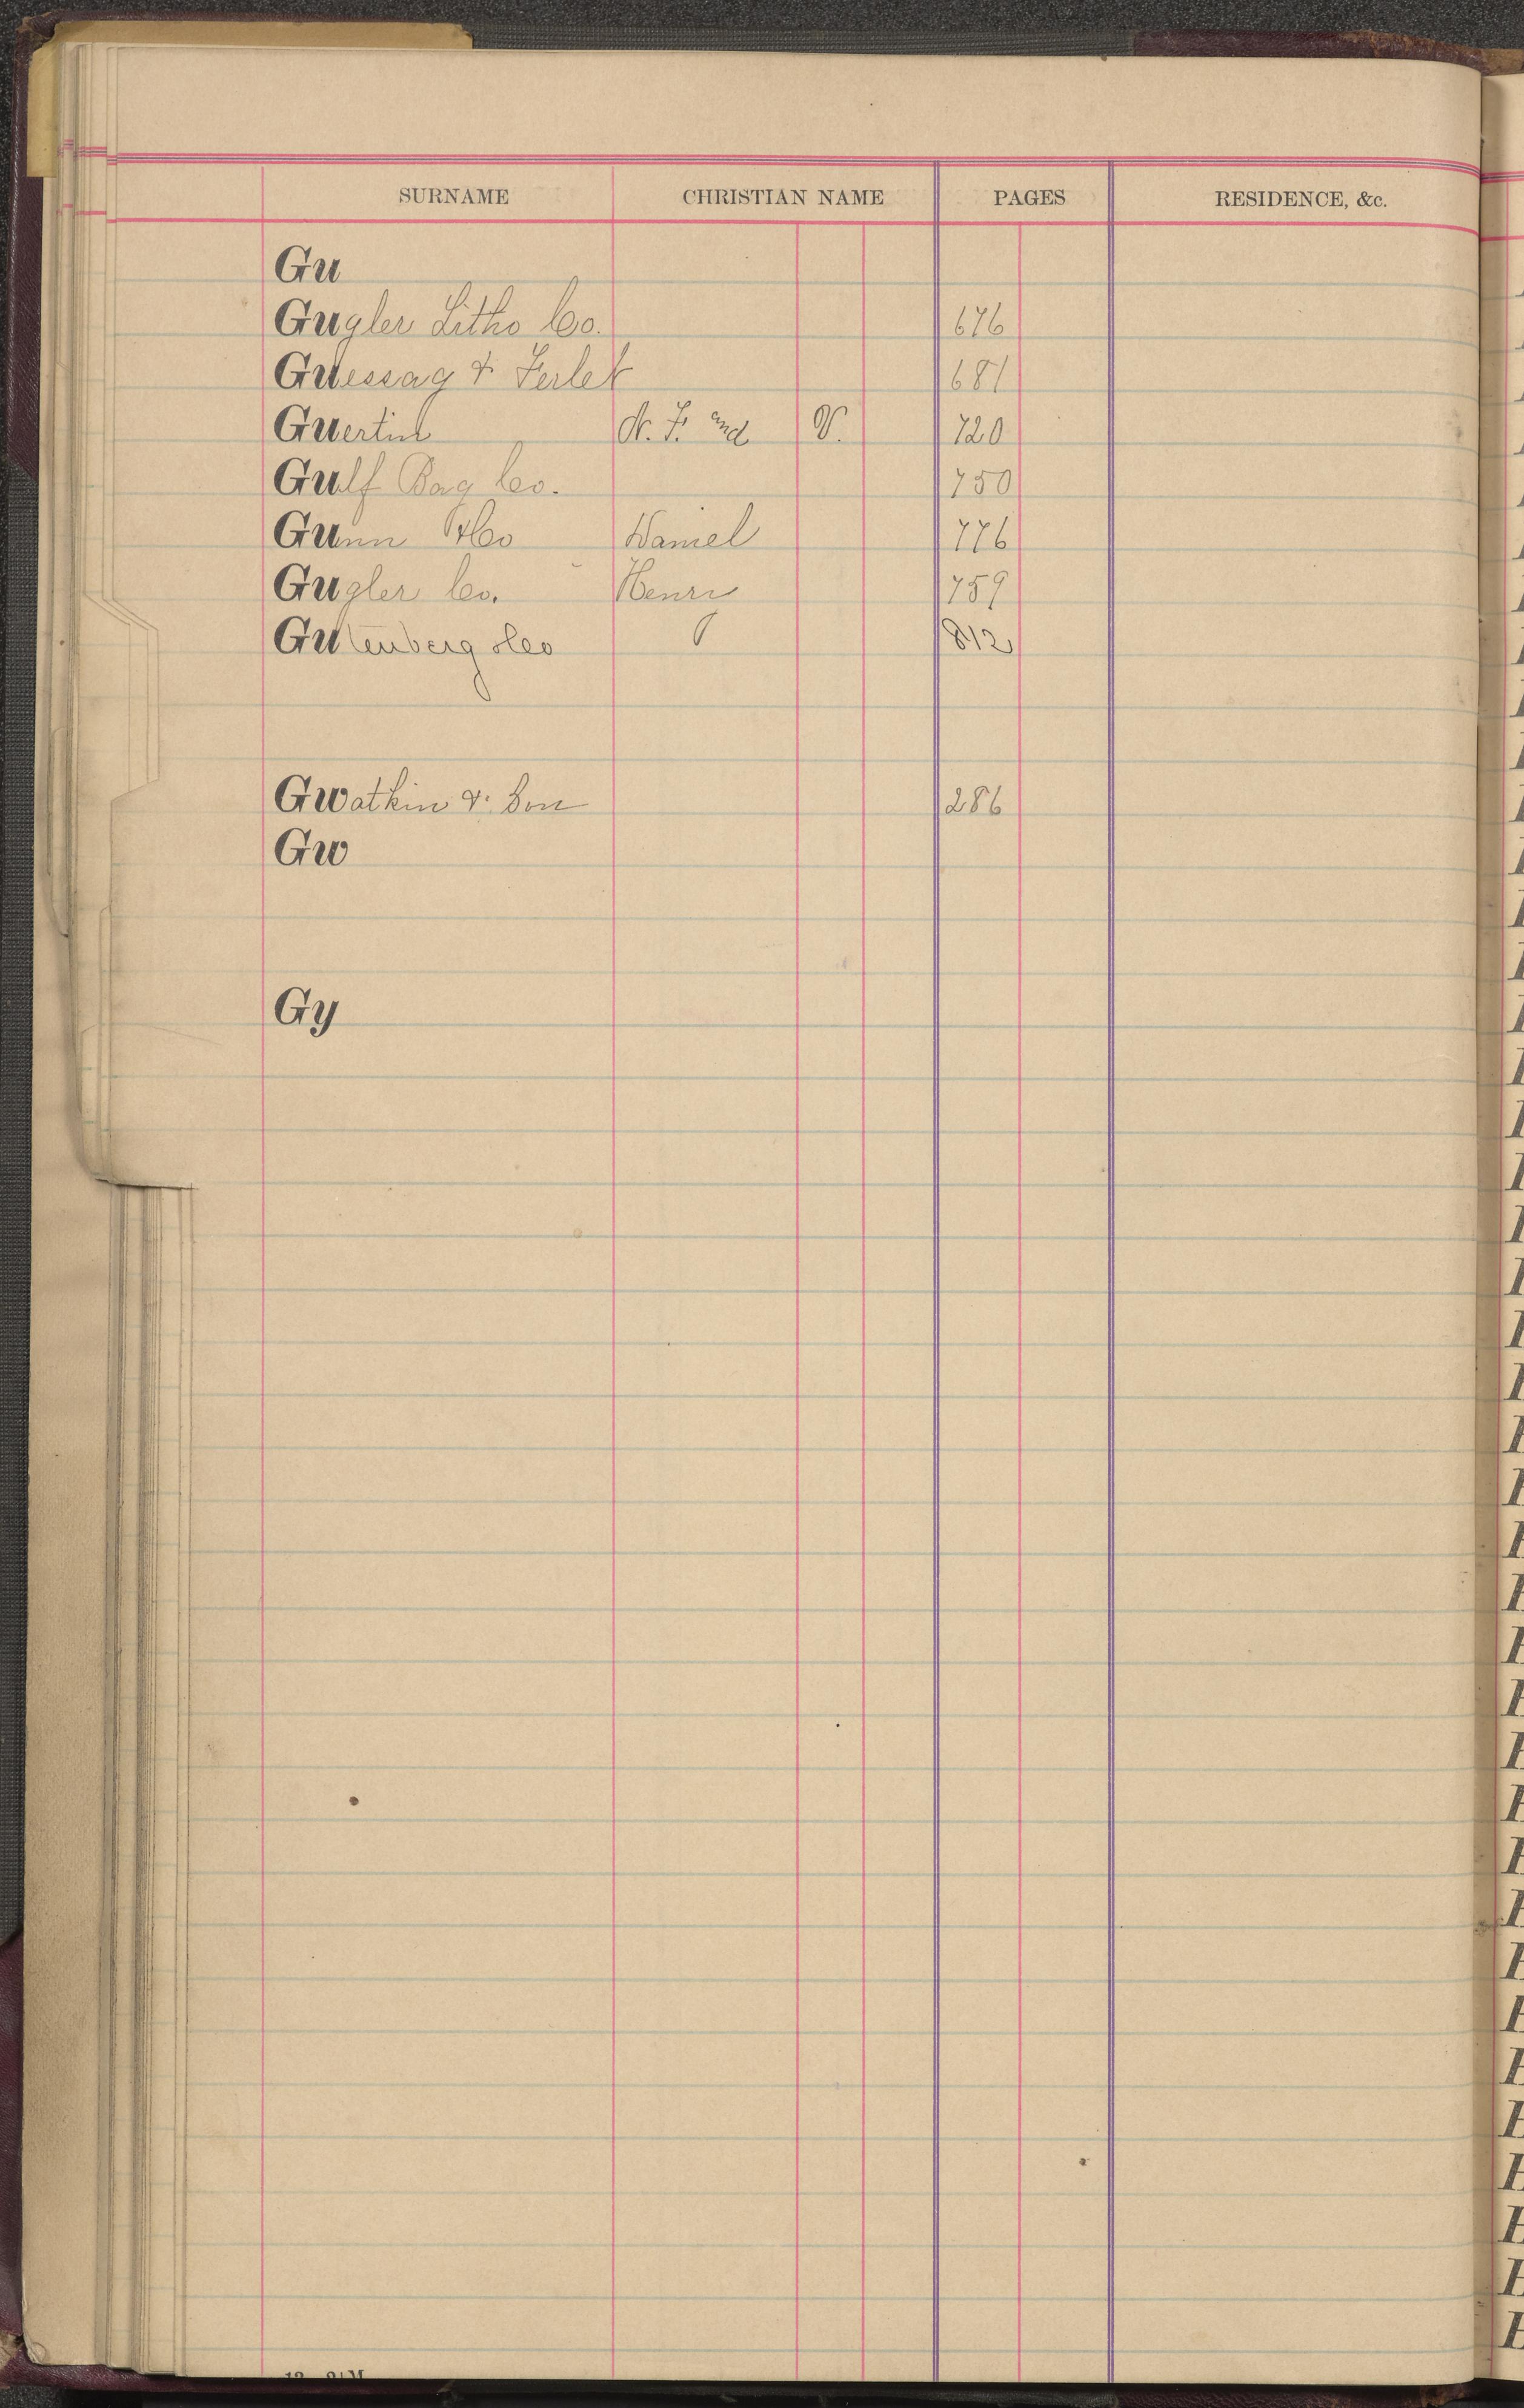 SURNAME CHRISTIAN NAME PAGES RESIDENCE, &c.
Gu
Gugler Litho Co. 676
Guessaz & Ferlet 681
Guertin N. F. and V. 720
Gulf Bag Co. 750
Gunn & Co Daniel 776
Gugler Co. Henry 759
Gutenberg & Co 812
Gwatkin & Son 286
Gw
Gy